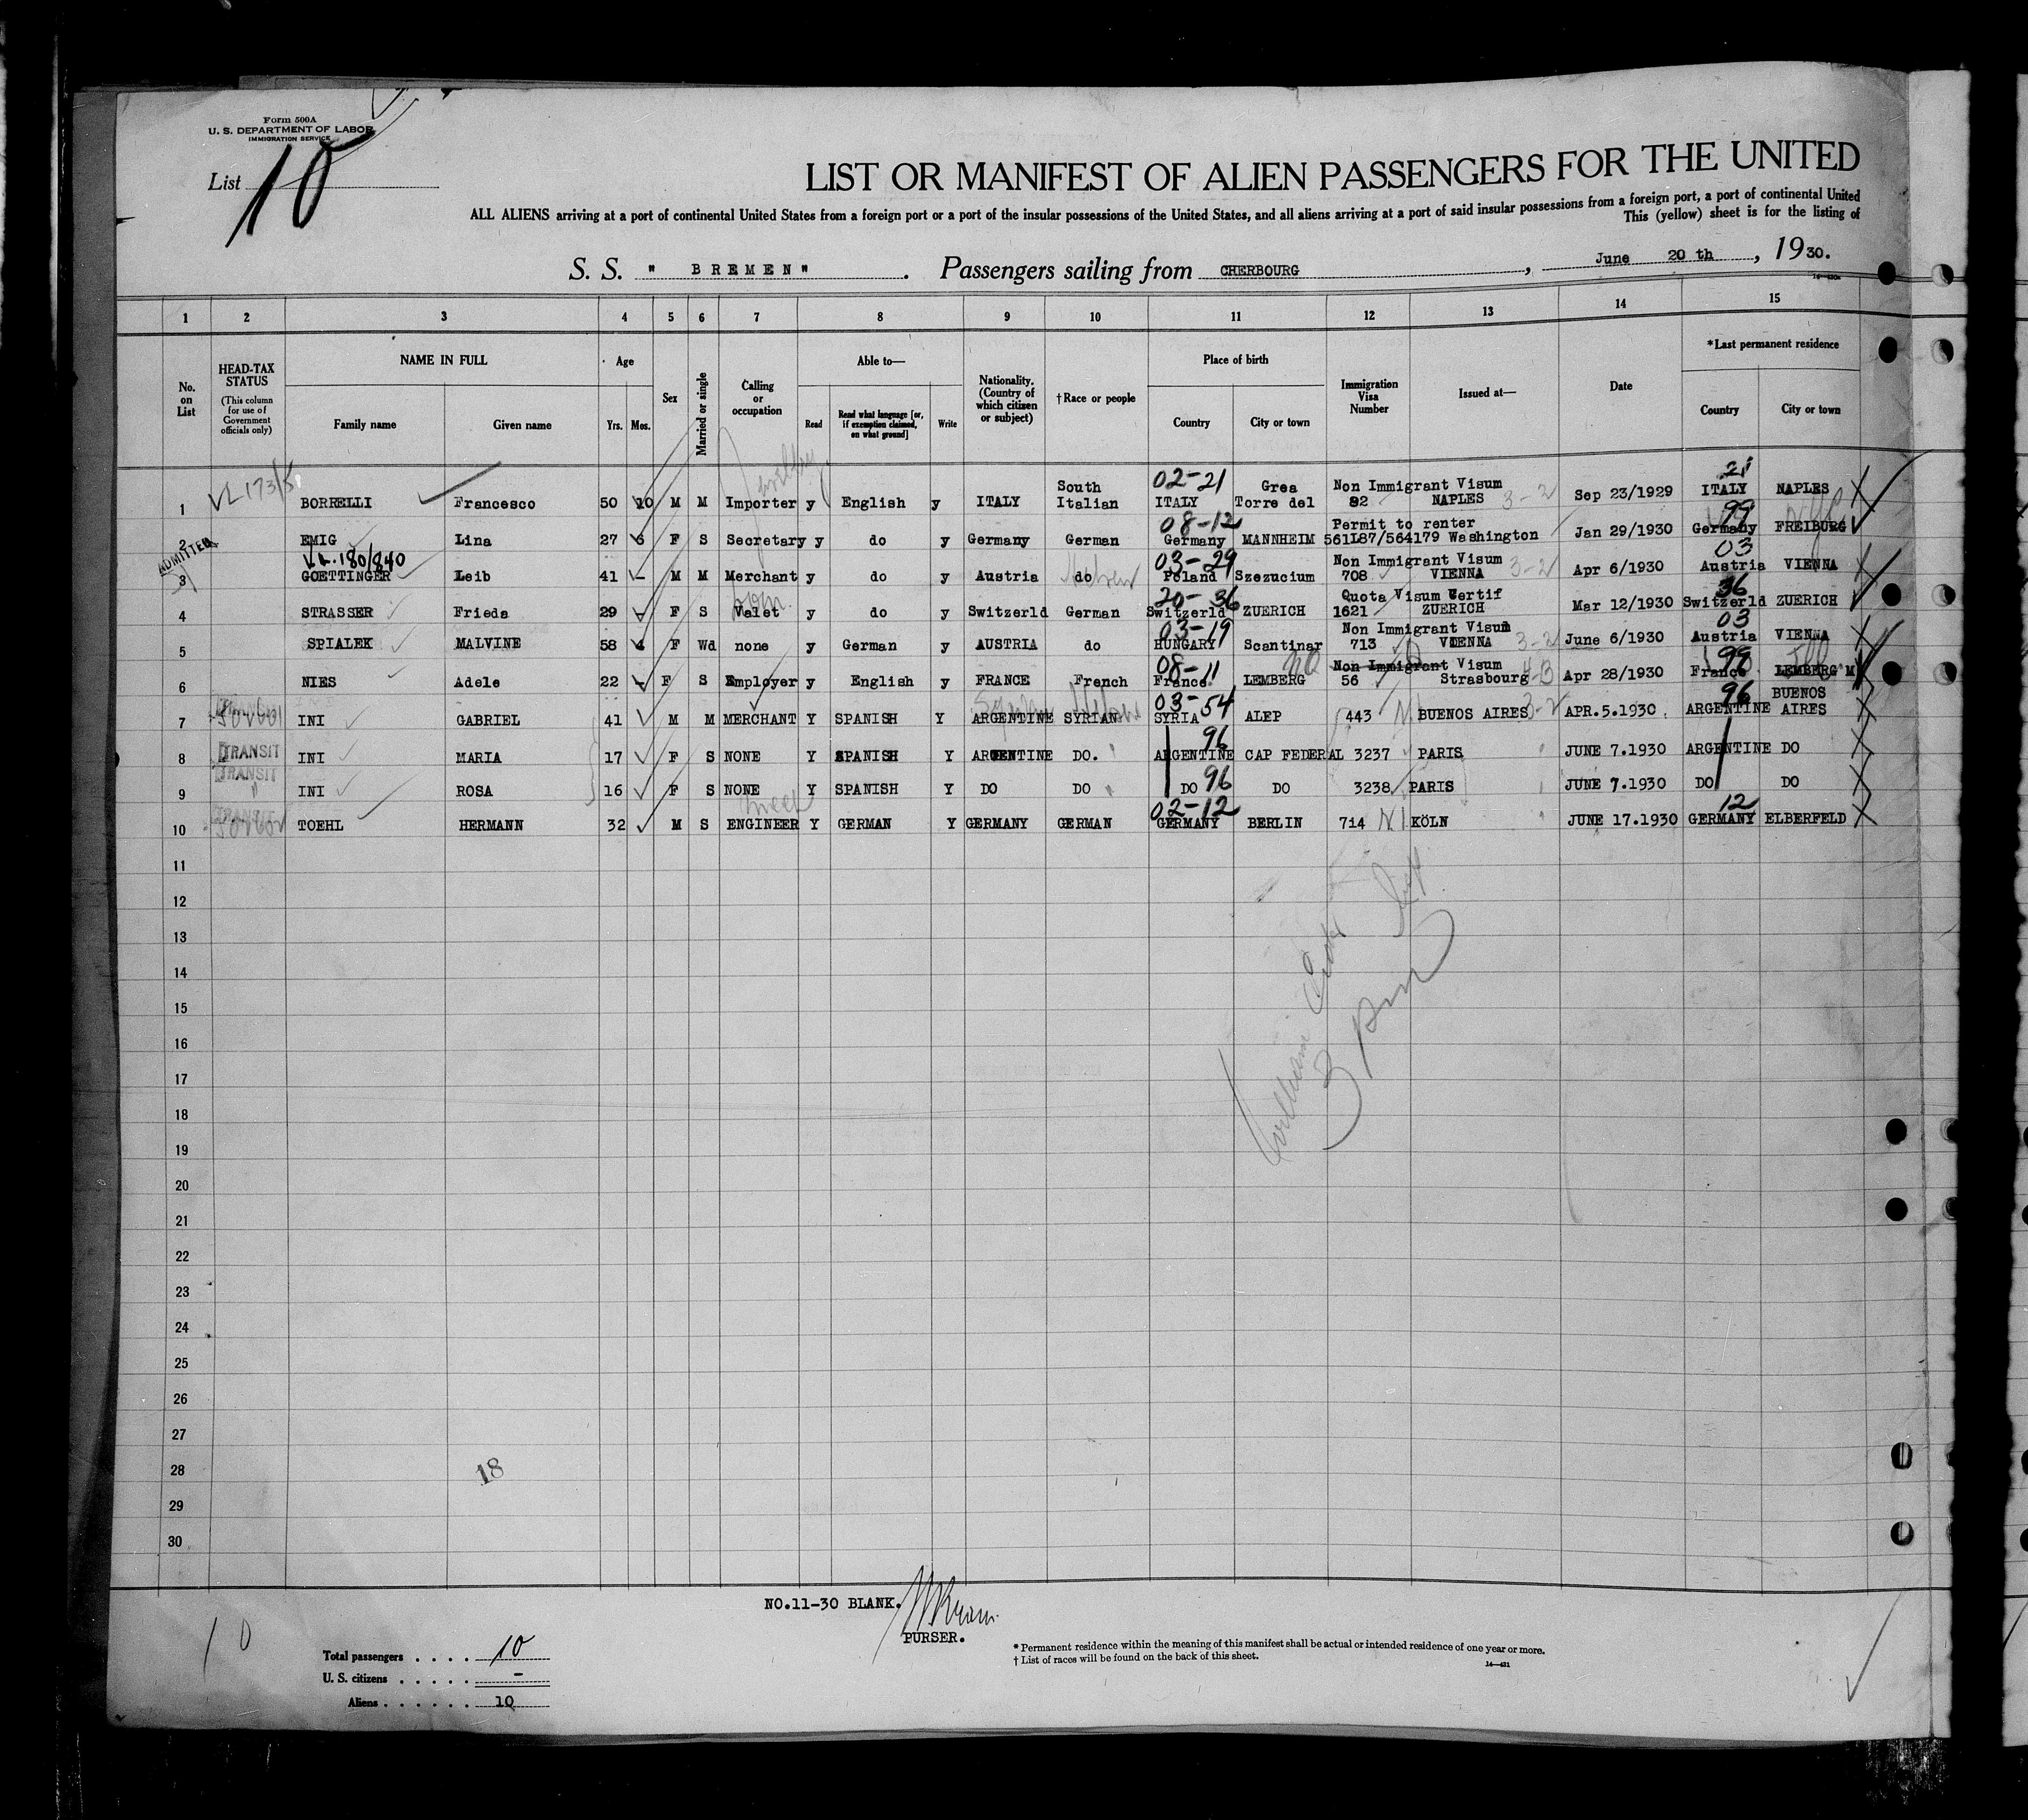 Form 500A
U. S. DEPARTMENT OF LABOR
IMMIGRATION SERVICE
List 10
LIST OR MANIFEST OF ALIEN PASSENGERS FOR THE UNITED
ALL ALIENS arriving at a port of continental United States from a foreign port or a port of the insular possessions of the United States, and all aliens arriving at a port of said insular possessions from a foreign port, a port of continental United
This (yellow) sheet is for the listing of
S. S. " BREMEN" . Passengers sailing from CHERBOURG , June 20 th , 1930.
1 2 3 4 5 6 7 8 9 10 11 12 13 14 15
No. on List
HEAD-TAX STATUS (This column for use of Government officials only)
NAME IN FULL
Family name Given name
Age
Yrs. Mos.
Sex
Married or single
Calling or occupation
Able to—
Read
Read what language [or, if exemption claimed, on what ground]
Write
Nationality. (Country of which citizen or subject)
†Race or people
Place of birth
Country City or town
Immigration Visa Number
Issued at—
Date
*Last permanent residence
Country City or town
02-21 21
South Grea Non Immigrant Visum
1 BORRELLI Francesco 50 10 M M Importer y English y ITALY Italian ITALY Torre del 82 NAPLES 3-2 Sep 23/1929 ITALY NAPLES
08-12 99
Permit to renter
2 EMIG Lina 27 6 F S Secretary y do y Germany German Germany MANNHEIM 561L87/564179 Washington Jan 29/1930 Germany FREIBURG
ADMITTED
180/840 03-29 03
Non Immigrant Visum
3 GOETTINGER Leib 41 - M M Merchant y do y Austria do Hebrew Poland Szezucium 708 VIENNA 3-2 Apr 6/1930 Austria VIENNA
20-36 36
Quota Visum Certif
4 STRASSER Frieda 29 F S Valet y do y Switzerld German Switzerld ZUERICH 1621 ZUERICH Mar 12/1930 Switzerld ZUERICH
03-19 03
Non Immigrant Visum
5 SPIALEK MALVINE 58 4 F Wd none y German y AUSTRIA do HUNGARY Scantinar 713 VIENNA 3-2 June 6/1930 Austria VIENNA
08-11 99
Non Immigrant Visum
6 NIES Adele 22 F S Employer y English y FRANCE French France LEMBERG 56 Strasbourg 4-B Apr 28/1930 France LEMBERG M
03-54 96
BUENOS
7 INI GABRIEL 41 M M MERCHANT Y SPANISH Y ARGENTINE SYRIAN SYRIA ALEP 443 BUENOS AIRES 3-2 APR.5.1930 ARGENTINE AIRES
TRANSIT 96
8 INI MARIA 17 F S NONE Y SPANISH Y ARGENTINE DO. ARGENTINE CAP FEDERAL 3237 PARIS JUNE 7.1930 ARGENTINE DO
TRANSIT
9 INI ROSA 16 F S NONE Y SPANISH Y DO DO DO 96 DO 3238 PARIS JUNE 7.1930 DO DO
02-12 12
10 TOEHL HERMANN 32 M S ENGINEER Y GERMAN Y GERMANY GERMAN GERMANY BERLIN 714 KÖLN JUNE 17.1930 GERMANY ELBERFELD
11
12
13
14
15
16
17
18
19
20
21
22
23
24
25
26
27
28
29
30
18
NO.11-30 BLANK.
PURSER.
10
Total passengers . . . . 10
U. S. citizens . . . . . -
Aliens . . . . . . 10
* Permanent residence within the meaning of this manifest shall be actual or intended residence of one year or more.
† List of races will be found on the back of this sheet.